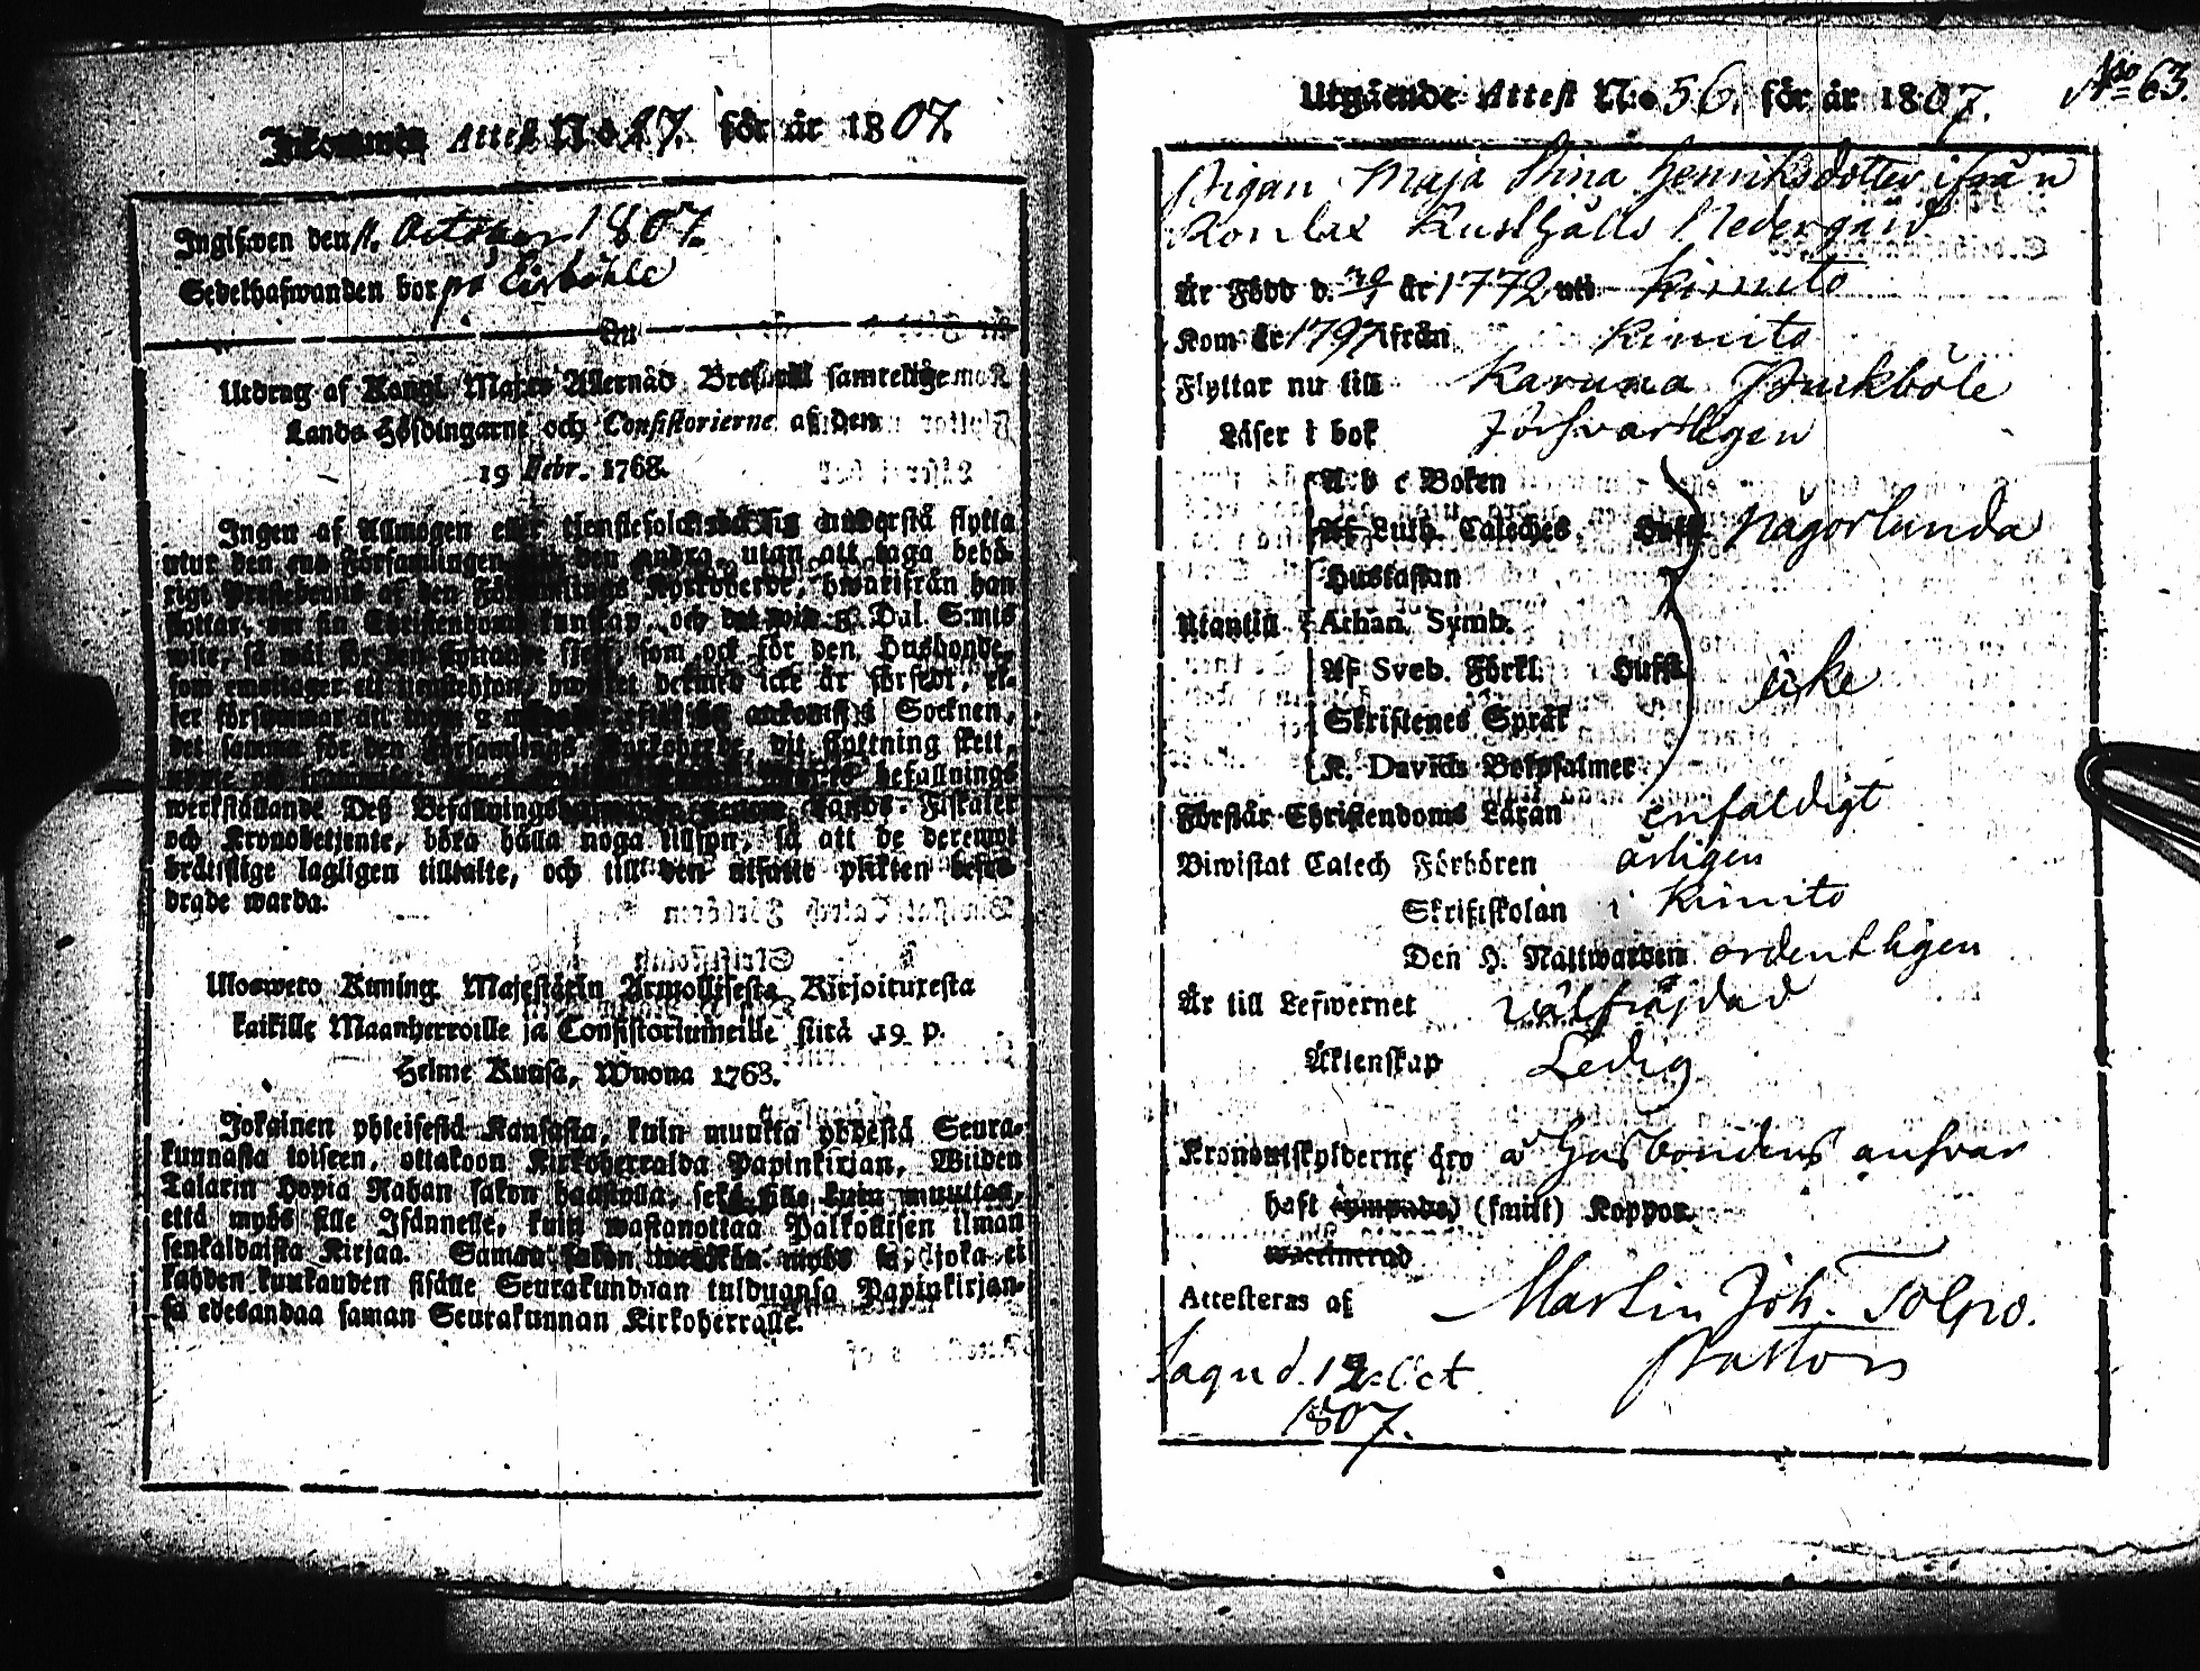 Inkommen Attest N:o 27. för år 1807.
Ingifwen den October 1807.
Sedelhafwanden bor på
Utdrag af Kongl. Maj:ts Allernåd. Bref till samtelige
Lands-Höfdingarne och Consistorierne af den
19 Febr. 1768.
Ingen af Allmogen eller tjenstefolck må sig understå flytta
utur den ena Församlingen den andra, utan att taga behö-
rigt af den Församlings Kyrkoherde, hwarifrån han
flyttar, om sin Christendoms kunskap, och det wid 3 Dal. S:mts
wite, så wäl för den flyttande sjelf, som ock för den Husbonde,
som emottager ett tjenstehjon, hwilket dermed icke är försedt, el-
ler försummar att inom 2 Socknen,
det samma för den Församlings Kyrkoherde, dit flyttning skett,
befallnings
werkställande Deß Befallnings Lands-Fiskaler
och Kronobetjente, böra hålla noga tillsyn, så att de deremot
brätslige lagligen tilltalte, och till den utsatte plikten befor-
drade warda.
Ulosweto Kuning. Majestätin Armollisesta Kirjoituxesta
kaikille Maanherroille ja Consistoriumeille siitä 19 p.
Helme Kuusa, Wuona 1768.
Jokainen yhteisestä Kansasta, kuin muutta yhdestä Seura-
kunnasta toiseen, ottakoon Kirkoherralda Papinkirjan, Wiiden
Talarin Hopia Rahan sakon haastolla, sekä sille kuin muuttaa,
että myös sille Isännelle, kuin wastanottaa Palkollisen ilman
senkaldaista Kirjaa. Saman sakon myös se, joka ei
kahden kuukauden sisälle Seurakundaan tulduansa Papinkirjan-
sa edesandaa saman Seurakunnan Kirkoherralle.
Utgående Attest N:o 56. för år 1807.
N:o 63.
Pigan Maja Stina Henriksdotter ifrån
Rusthålls Nedergård
Är Född d. år 1772 uti Kimito
Kom år 1797 ifrån Kimito
Flyttar nu till Karuna
Läser i bok försvarligen
A b c Boken
Af Luth. Cateches. Huft. någorlunda
Hustaflan
Utantill Athan. Symb.
Af Sveb. Förkl. Hufst. icke
Skriftenes Språk
K. Davids Botpsalmer
Förstår Christendoms Läran enfaldigt
Biwistat Catech Förhören årligen
Skriftskolan i Kimito
Den H. Nattwarden ordentligen
Är till Lefwernet välfräjdad
Äktenskap Ledig
Kronoutskylderne äro å Husbondens ansvar
haft (ympade) (smitt) Koppor.
waccinerad
Attesteras af Martin Joh. Tolpo.
Pastor
Sagu d. 12 Oct.
1807.